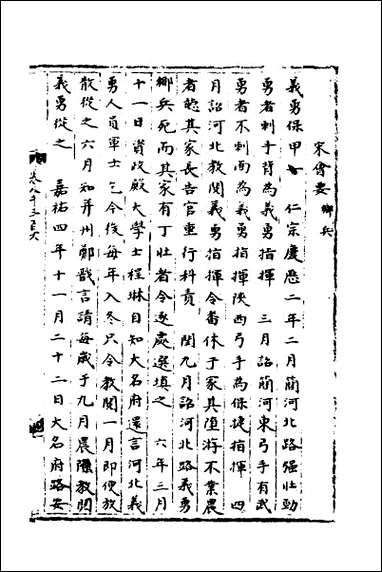 宋會要 鄉兵
義勇保甲 仁宗慶歷二年二月簡河北路强壯勁
勇者刺手背為義勇指揮 三月詔簡河東弓手有武
勇者不刺面為義勇指揮陝西弓手為保捷指揮 四
月詔河北教閱義勇指揮令番休于家其墮游不業農
者聽其家長告官重行科責 閏九月詔河北路義勇
鄉兵死而其家有丁壯者令逐處選填之 六年三月
十一日資政殿大學士程琳自知大名府還言河北義
勇人員軍士乞今後每年入冬只令教閱一月即便放
散從之六月知并州鄭戩言請每歲于九月農隙教閱
義勇從之 嘉祐四年十一月二十二日大名府路安
卷八千三百